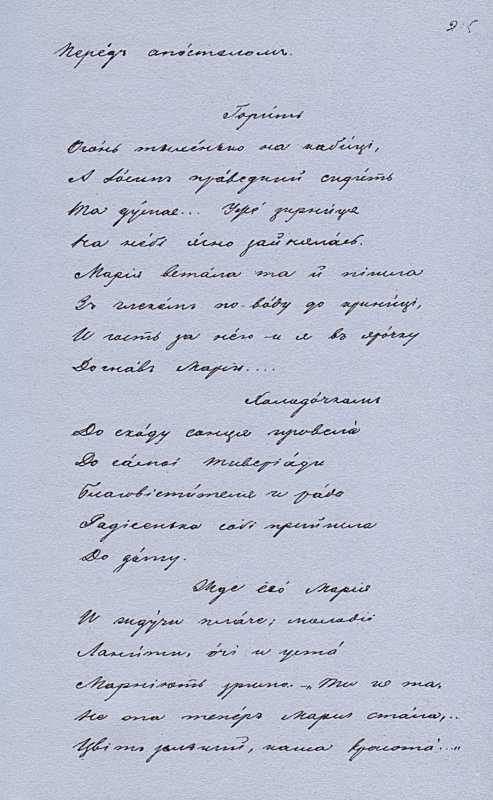 25
Перédъ апóстоломъ.
Гори́ть
Огóнь тылéнько на каби́ці,
А Іóсипъ прáведний сиди́ть
Та ду́має... Ужé зирни́ця
На нéбі я́сно зайнялáсь.
Марія встáла та й пішла
Зъ глекóмъ по вóду до крини́ці,
И гость за нéю и я въ ярóчку
Догнáвъ Марíю....
Холодóчкомъ
До схóду сонця провелá
До сáмоі Тиверіáди
Благовісти́теля и рáда
Радісенька собі прийшла
До дóму.
Жде єгó Марія
И ждучи́ плáче; молодіі
Лани́ти, óчі и устá
Марніють зримо. „Ти не та,
Не она тепéръ Мария стáла,..
Цвітъ зельний, наша красотá...."